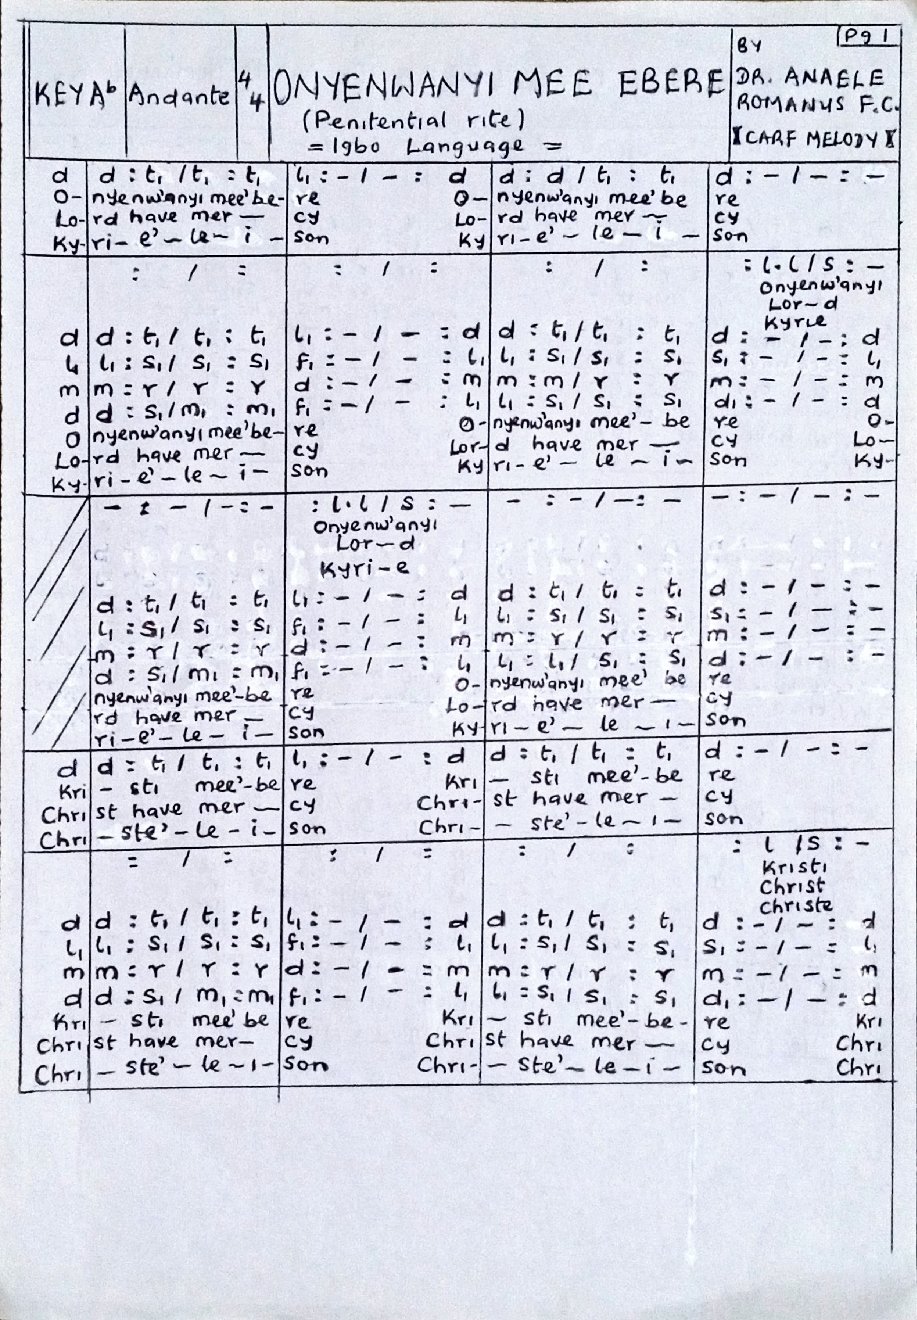 Pg 1
KEY Aᵇ Andante 4/4 ONYENWANYI MEE EBERE
(Penitential rite)
= Igbo Language =
BY
DR. ANAELE
ROMANUS F.C.
[CARF MELODY]
d | d : t₁ / t₁ : t₁ | l₁ : - / - : d | d : d / t₁ : t₁ | d : - / - : -
O- | nyenw'anyi mee' be- | re O- | nyenw'anyi mee' be | re
Lo- | rd have mer — | cy Lo- | rd have mer — | cy
Ky- | ri - e' - le - i - | son Ky | ri - e' - le - i - | son
: / : | : / : | : / : | : l . l / s : -
Onyenw'anyi
Lor - d
Kyrie
d | d : t₁ / t₁ : t₁ | l₁ : - / - : d | d : t₁ / t₁ : t₁ | d : - / - : d
l₁ | l₁ : s₁ / s₁ : s₁ | f₁ : - / - : l₁ | l₁ : s₁ / s₁ : s₁ | s₁ : - / - : l₁
m | m : r / r : r | d : - / - : m | m : m / r : r | m : - / - : m
d | d : s₁ / m₁ : m₁ | f₁ : - / - : l₁ | l₁ : s₁ / s₁ : s₁ | d₁ : - / - : d
O | nyenw'anyi mee' be- | re O- | nyenw'anyi mee' - be | re O-
Lo- | rd have mer — | cy Lor- | d have mer — | cy Lo-
Ky- | ri - e' - le - i - | son Ky | ri - e' - le - i - | son Ky-
- : - / - : - | : l . l / s : - | - : - / - : - | - : - / - : -
Onyenw'anyi
Lor - d
Kyri - e
d : t₁ / t₁ : t₁ | l₁ : - / - : d | d : t₁ / t₁ : t₁ | d : - / - : -
l₁ : s₁ / s₁ : s₁ | f₁ : - / - : l₁ | l₁ : s₁ / s₁ : s₁ | s₁ : - / - : -
m : r / r : r | d : - / - : m | m : r / r : r | m : - / - : -
d : s₁ / m₁ : m₁ | f₁ : - / - : l₁ | l₁ : l₁ / s₁ : s₁ | d : - / - : -
nyenw'anyi mee' - be | re O- | nyenw'anyi mee' be | re
rd have mer — | cy Lo- | rd have mer — | cy
ri - e' - le - i - | son Ky | ri - e' - le - i - | son
d | d : t₁ / t₁ : t₁ | l₁ : - / - : d | d : t₁ / t₁ : t₁ | d : - / - : -
Kri | - sti mee' - be | re Kri | - sti mee' - be | re
Chri | st have mer — | cy Chri- | st have mer - | cy
Chri | - ste' - le - i - | son Chri- | - ste' - le - i - | son
: / : | : / : | : / : | : l / s : -
Kristi
Christ
Christe
d | d : t₁ / t₁ : t₁ | l₁ : - / - : d | d : t₁ / t₁ : t₁ | d : - / - : d
l₁ | l₁ : s₁ / s₁ : s₁ | f₁ : - / - : l₁ | l₁ : s₁ / s₁ : s₁ | s₁ : - / - : l₁
m | m : r / r : r | d : - / - : m | m : r / r : r | m : - / - : m
d | d : s₁ / m₁ : m₁ | f₁ : - / - : l₁ | l₁ : s₁ / s₁ : s₁ | d₁ : - / - : d
Kri | - sti mee' be | re Kri | - sti mee' - be - | re Kri
Chri | st have mer - | cy Chri | st have mer — | cy Chri
Chri | - ste' - le - i - | son Chri- | - ste' - le - i - | son Chri